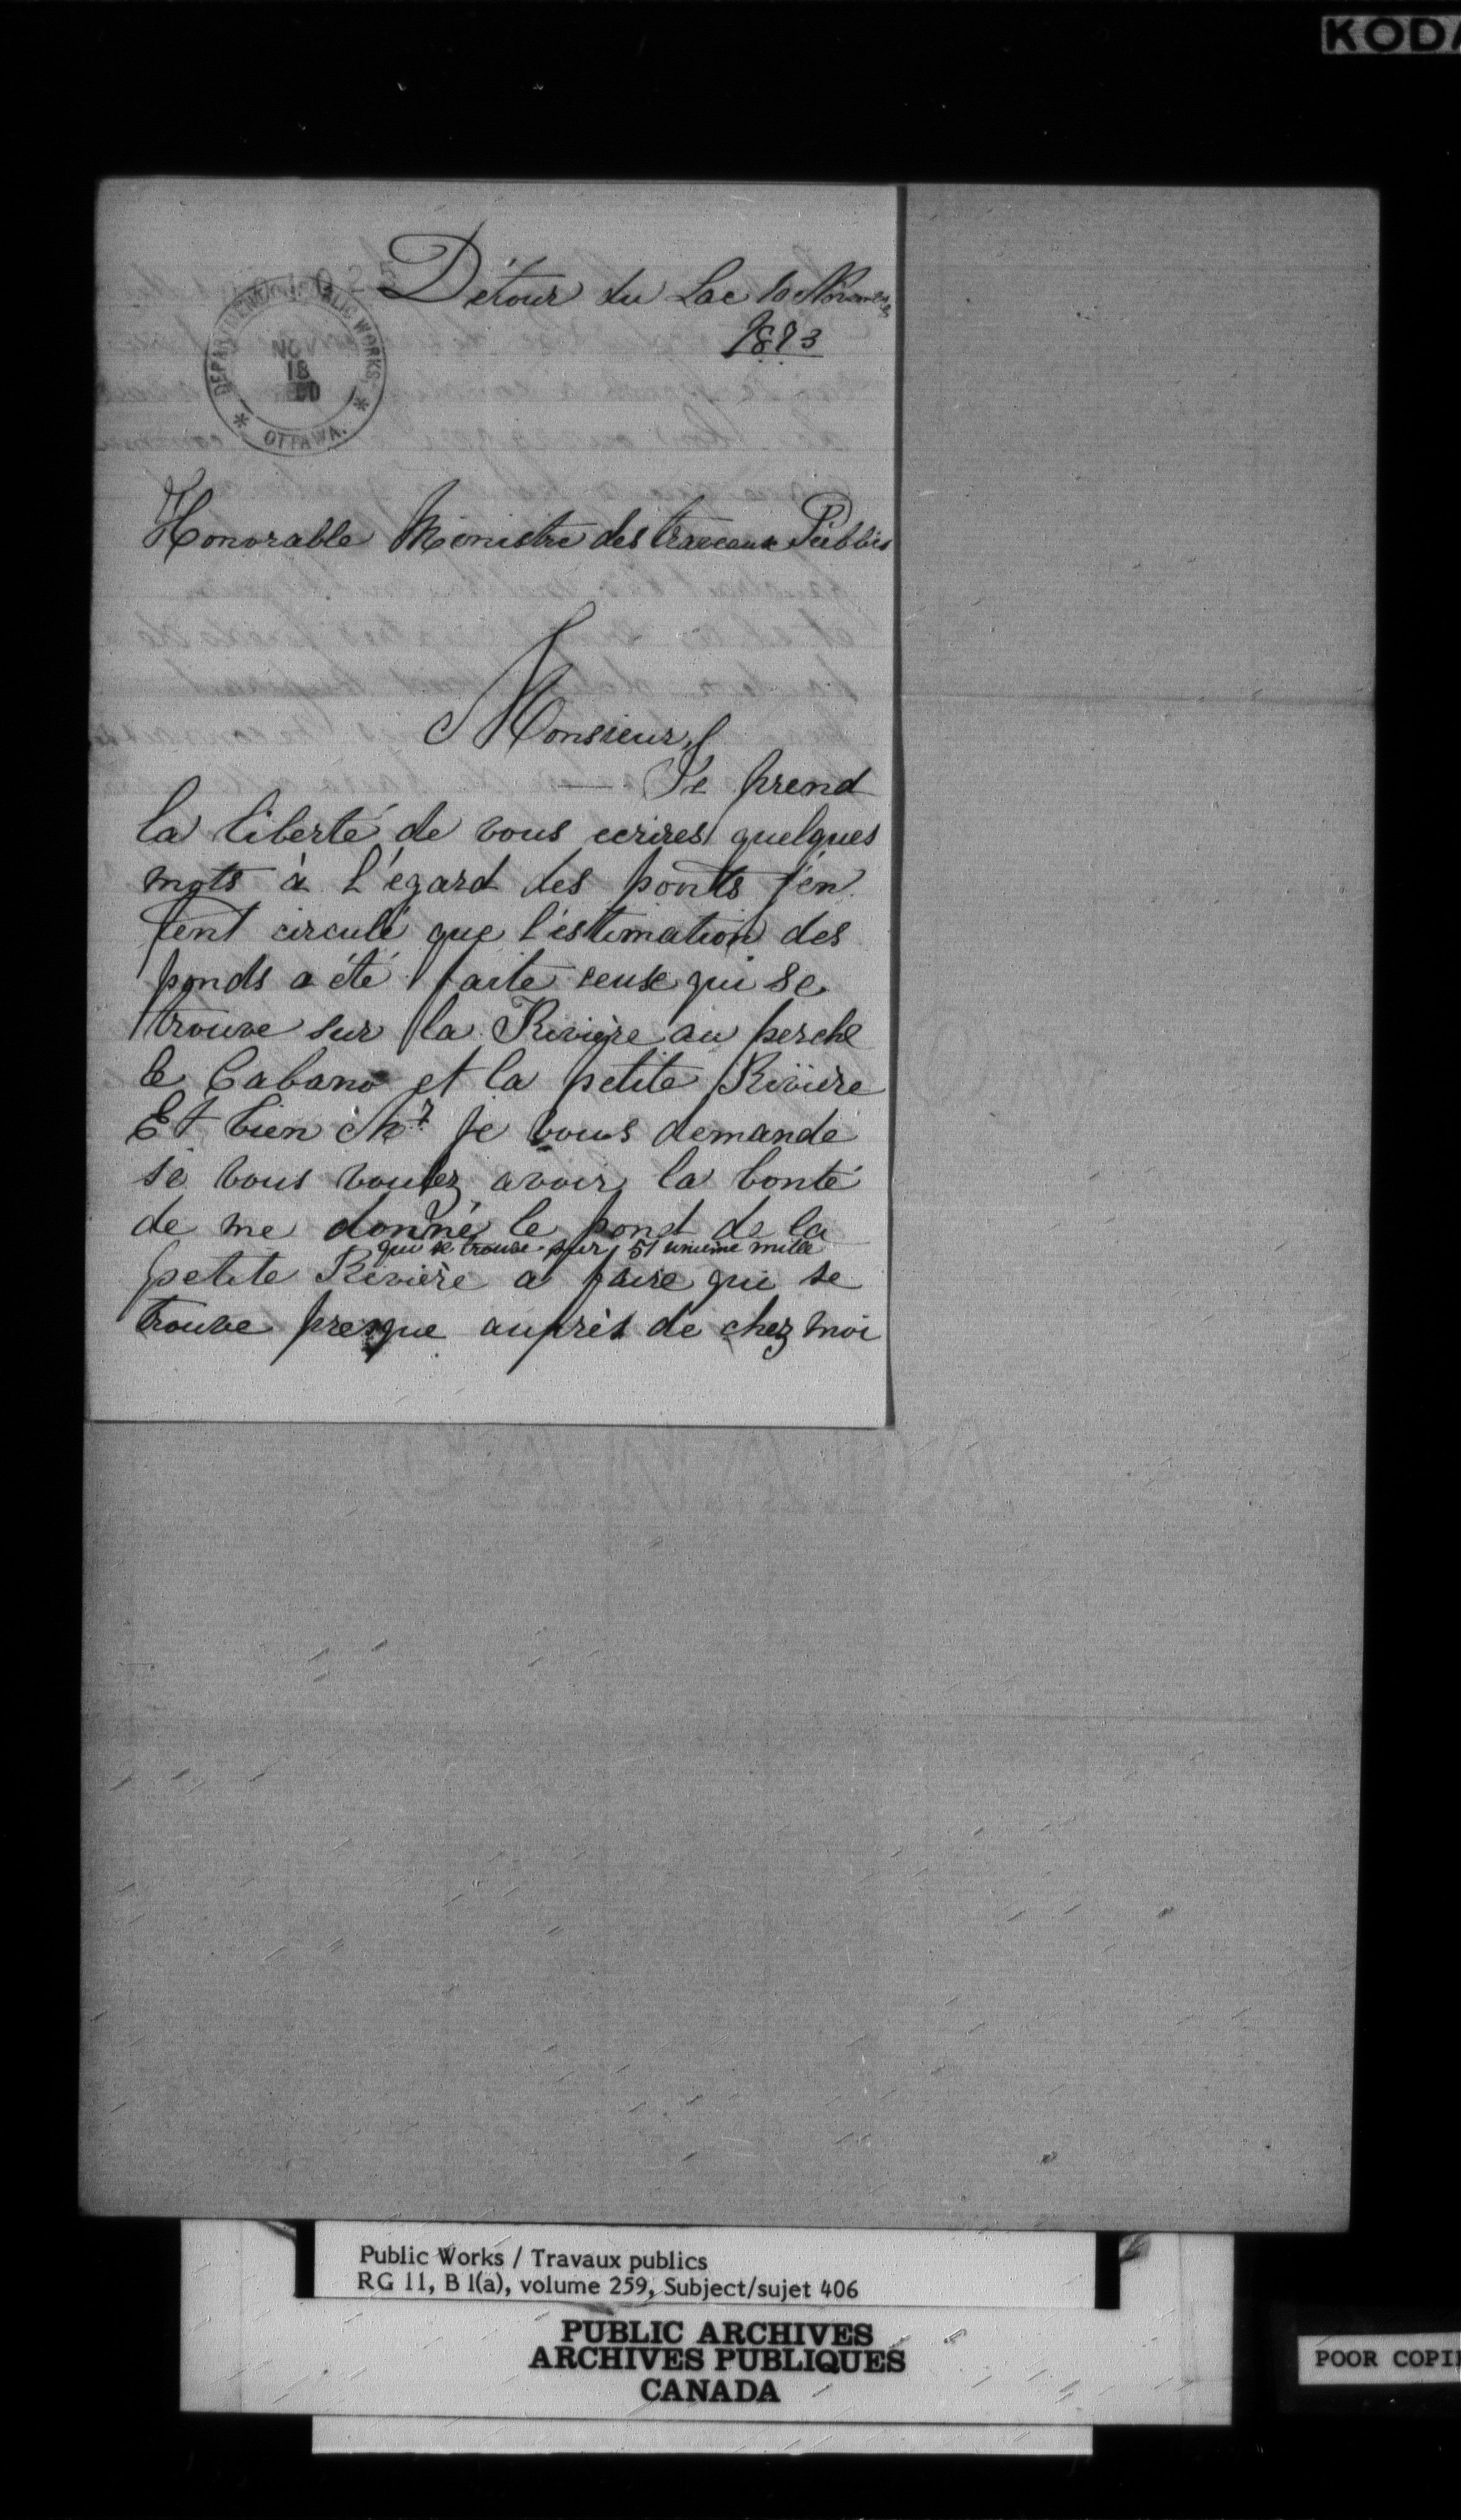 KODA
Détour du Lac 10 Novembre
1873
DEPARTMENT OF PUBLIC WORKS
NOV
18
OTTAWA.
Honorable Ministre des travaux Publics
Monsieur,
Je prend
la liberté de vous ecrires quelques
mots à l'égard des ponts j'en
tent circulé que l'estimation des
ponds a été faite ceuse qui se
trouve sur la Rivière au perche
le Cabano et la petite Rivière
Et bien Mr je vous demande
si vous voulez avoir la bonté
de me donné le pond de la
qui se trouve sur 51 unième mille
petite Rivière a faire qui se
trouve presque auprès de chez moi
Public Works / Travaux publics
RG 11, B 1(a), volume 259, Subject/sujet 406
PUBLIC ARCHIVES
ARCHIVES PUBLIQUES
CANADA
POOR COPI